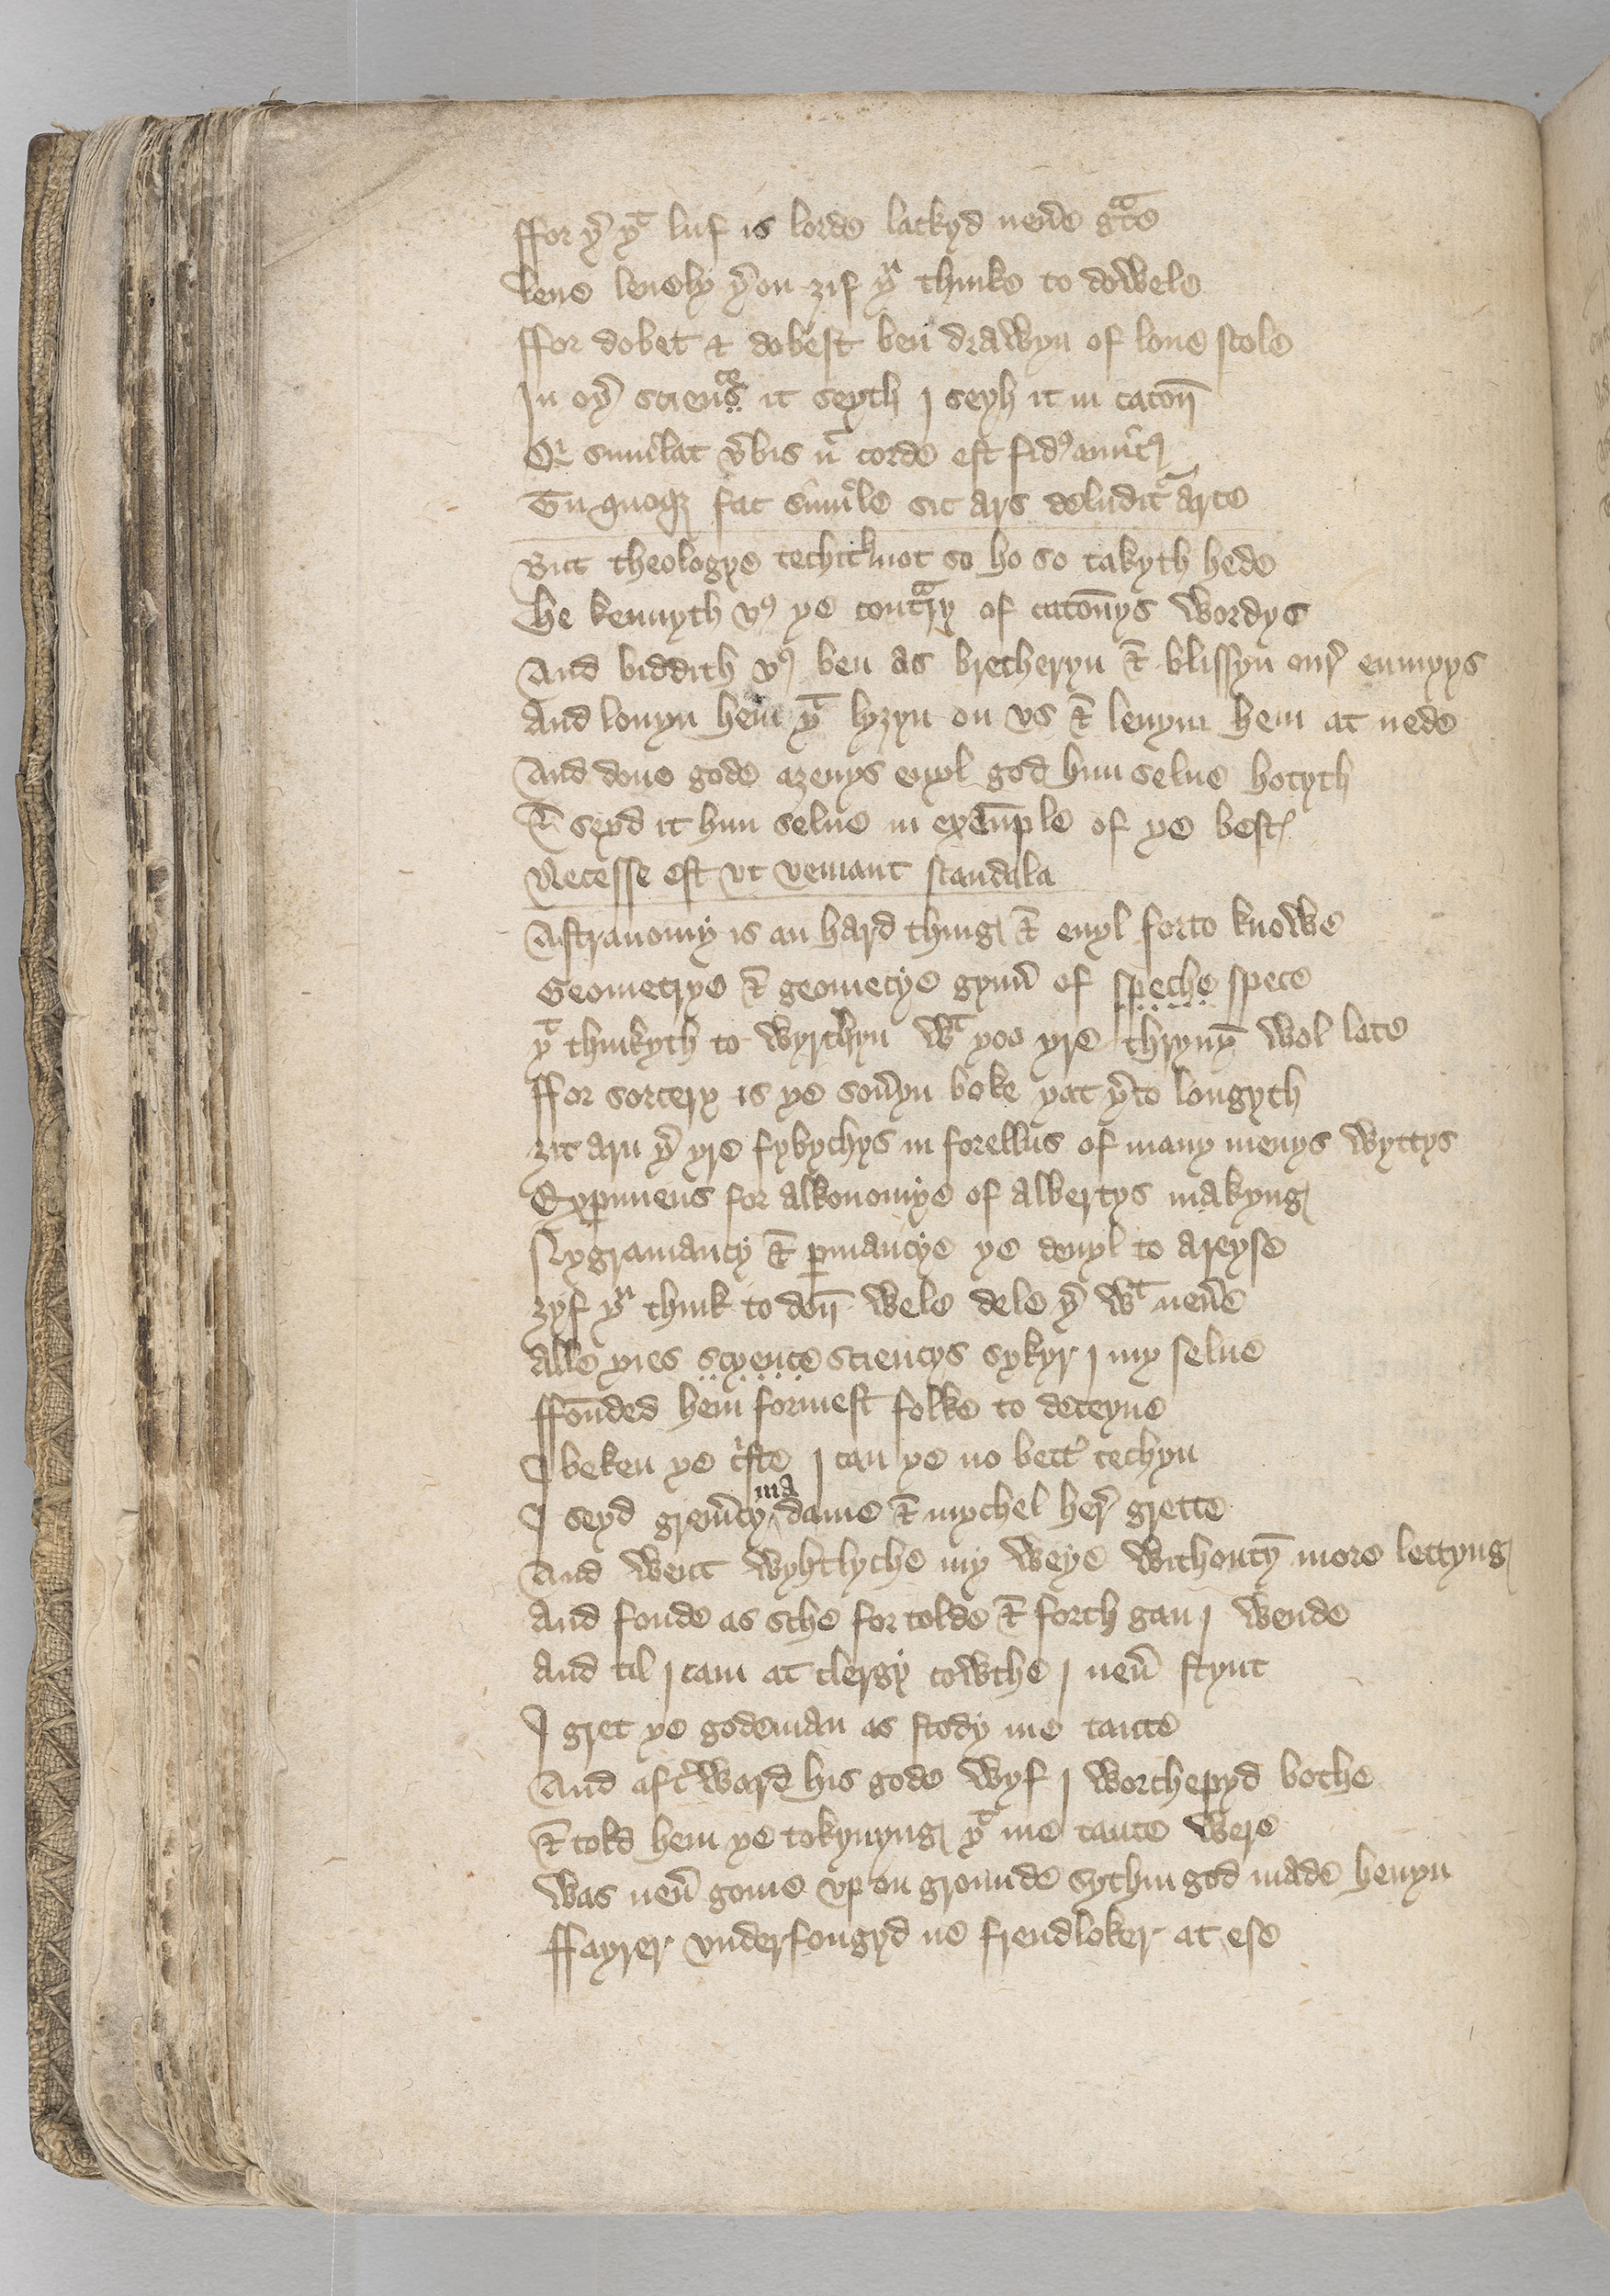 ffor yͬ yͭ luf is lorde lackyd neuͬe gͣce
leue leuely yͬon ȝif yͧ thinke to dowele
ffor dobet & dobest ben drawyn of loue scole
In oyͬ scienˢͨͤ it seyth I seyh it in caton̄
Qͥ simͥlat v̄bis nͨ corde est fidꝰ amicꝰ
Tu quoqꝫ fac simͥle sic ars deluditͬ arte
But theologye techitͪ not so ho so takyth hede
he kennyth vꝰ ye contͣry of caton̄ys wordys
And biddith vꝰ ben as bretheryn & blissyn ourͤ enmyys
And louyn hem yͭ lyȝyn on vs & lenym hem at nede
And done gode aȝenys euyl god him selue hotyth
& seyd it him selue in exem̄ple of ye best
Necesse est vt veniant scandala
Astranomy is an hard thing & euyl forto knowe
Geometrye & geomecye gynnͬ of speche spece
yͭ thinkyth to wyrchyn wͭ yoo yre thryuyn̄ wol late
ffor sorcery is ye souͬyn boke yat yͬto longyth
ȝit arn yͬ yre fybychys in forellus of many menys wyttys
Exꝑimens for alkonomye of albertys makyng
Nygramancy & ꝑmancye ye deuyl to areyse
ȝyf yͧ think to don̄ wele dele yͬ wͭ neuͬe
Alle yies scyence sciencys sykyr I my selue
ffōnded hem formest folke to deceyue
I beken ye cͥste I can ye no bettͬ techyn
I seyd gremͬcy madame & mychel herͤ grette
And went wyhtlyche my weye withoutyn̄ more lettyng
And fonde as sche for tolde & forth gan I wende
And til I cam at clergy cowthe I neuͬ stynt
I gret ye godeman as stody me taute
And aftͬward his gode wyf I worchepyd bothe
& told hem ye tokynyng yͭ me taute were
Was neuͬ gome vp on grounde sythin god made heuyn
ffayrer vnderfongyd ne frendloker at ese